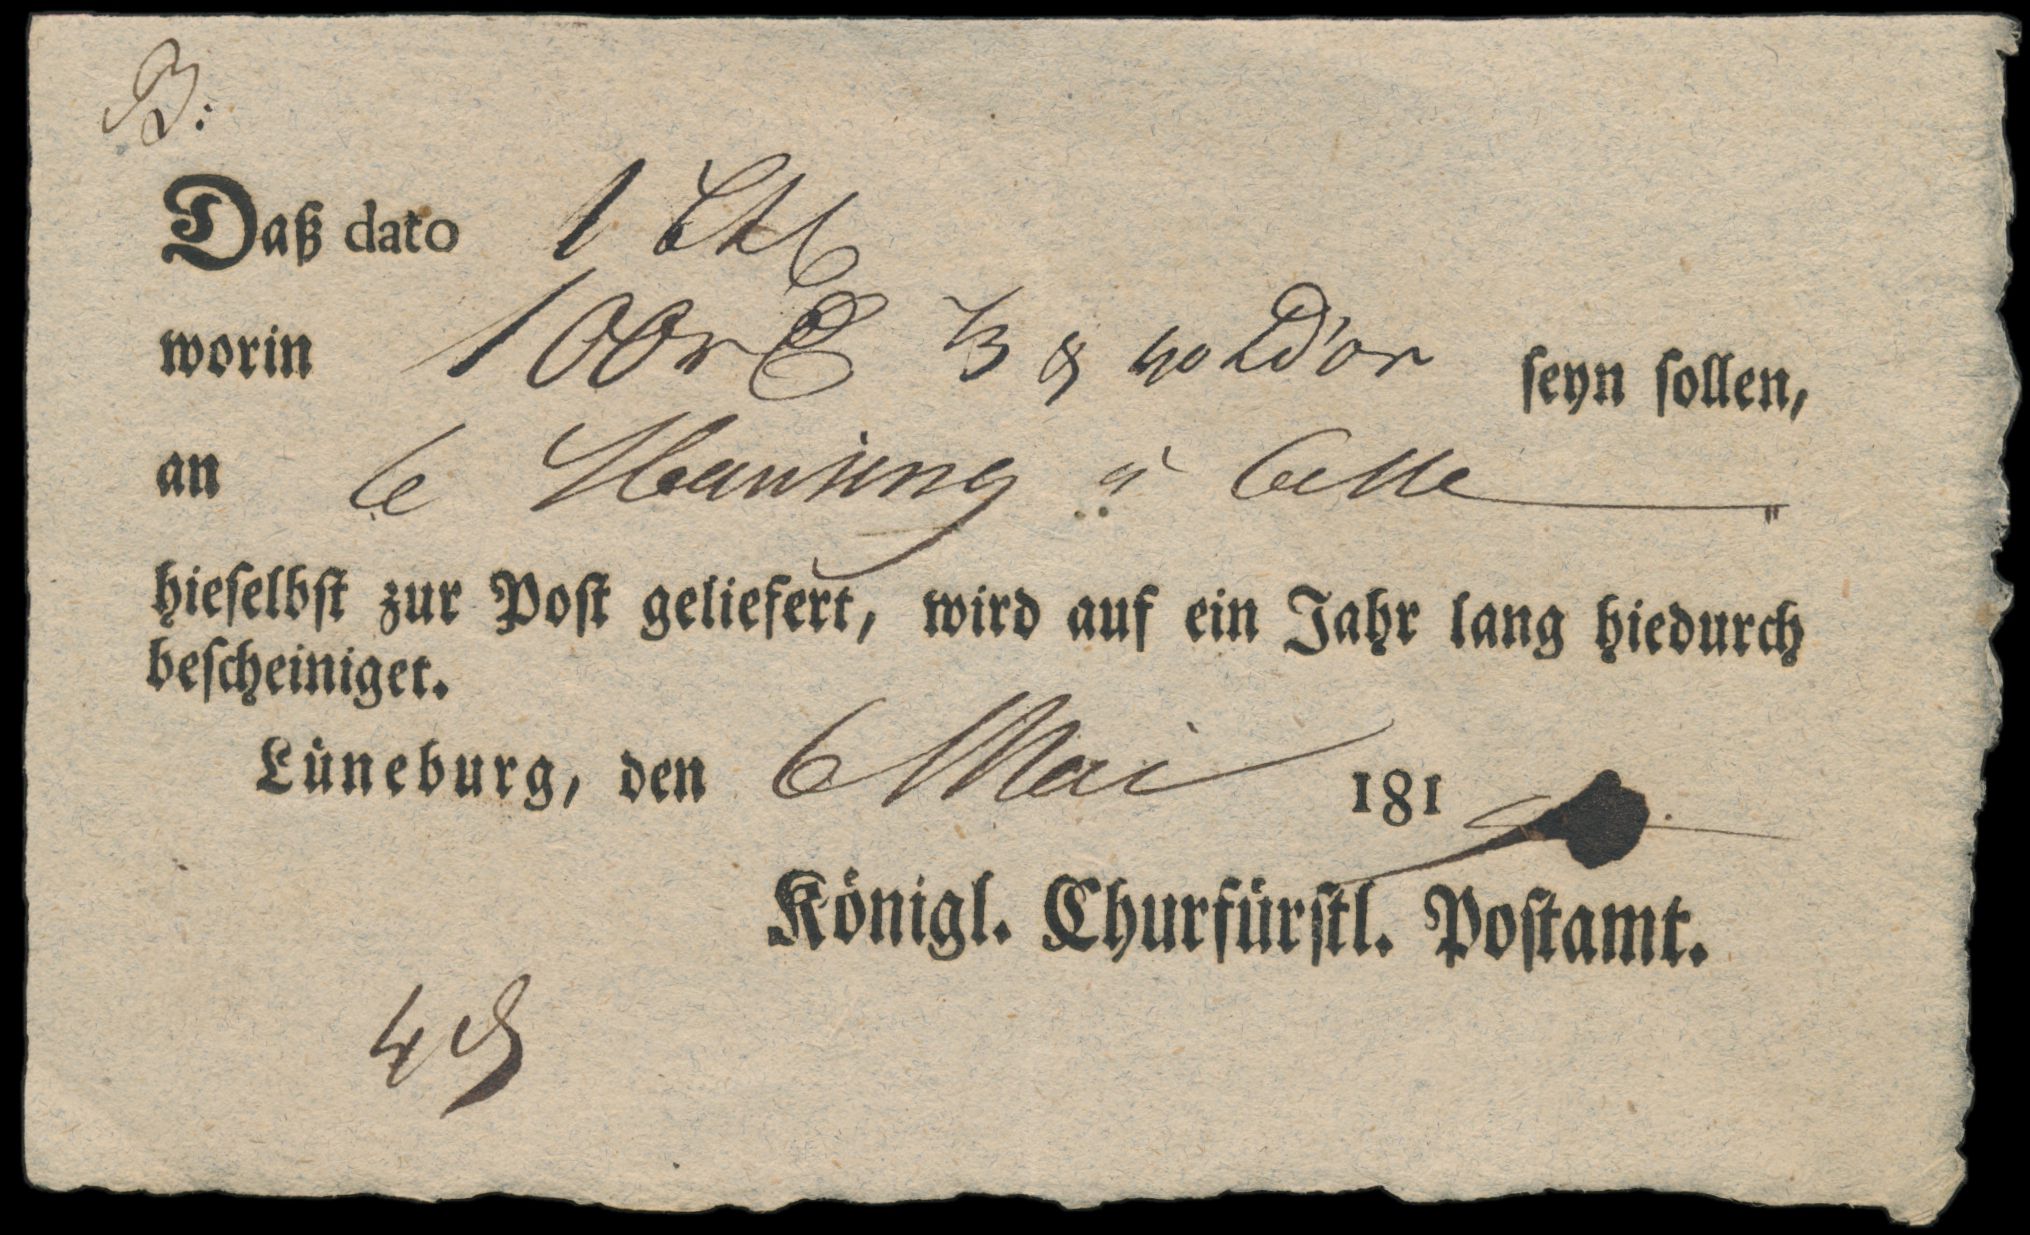 B:
Daß dato 1
worin 100 ⅓ & Ld'or seyn sollen,
an Hansing à Celle "
hieselbst zur Post geliefert, wird auf ein Jahr lang hiedurch
bescheiniget.
Lüneburg, den 6 Mai 181
Königl. Churfürstl. Postamt.
4